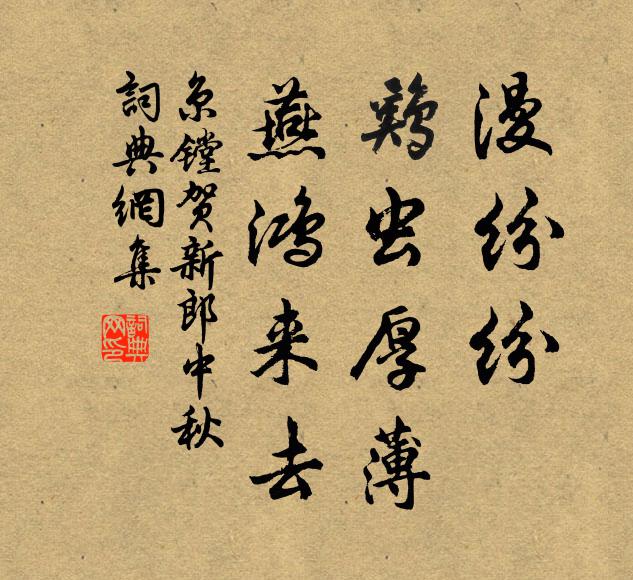 漫纷纷
鸡虫厚薄
燕鸿来去
京镗贺新郎中秋
詞典網集
詞典
网印